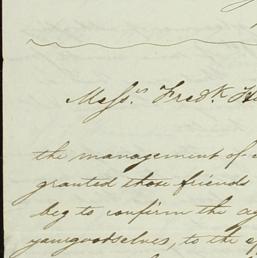 Mess.rs Fred.k
the management of
granted those friends
beg to confirm the
yourgoodselves, to the